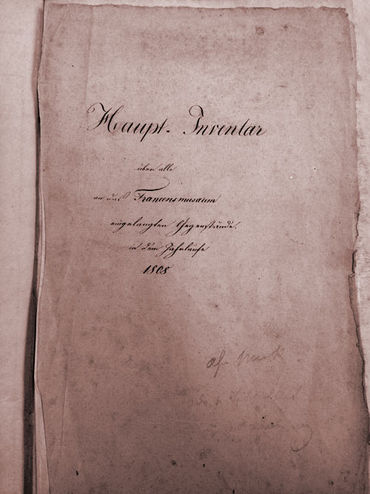 Haupt-Inventar
über alle
an das Francensmuseum
eingelangten Gegenstände.
in dem Jahrlaufe
1808